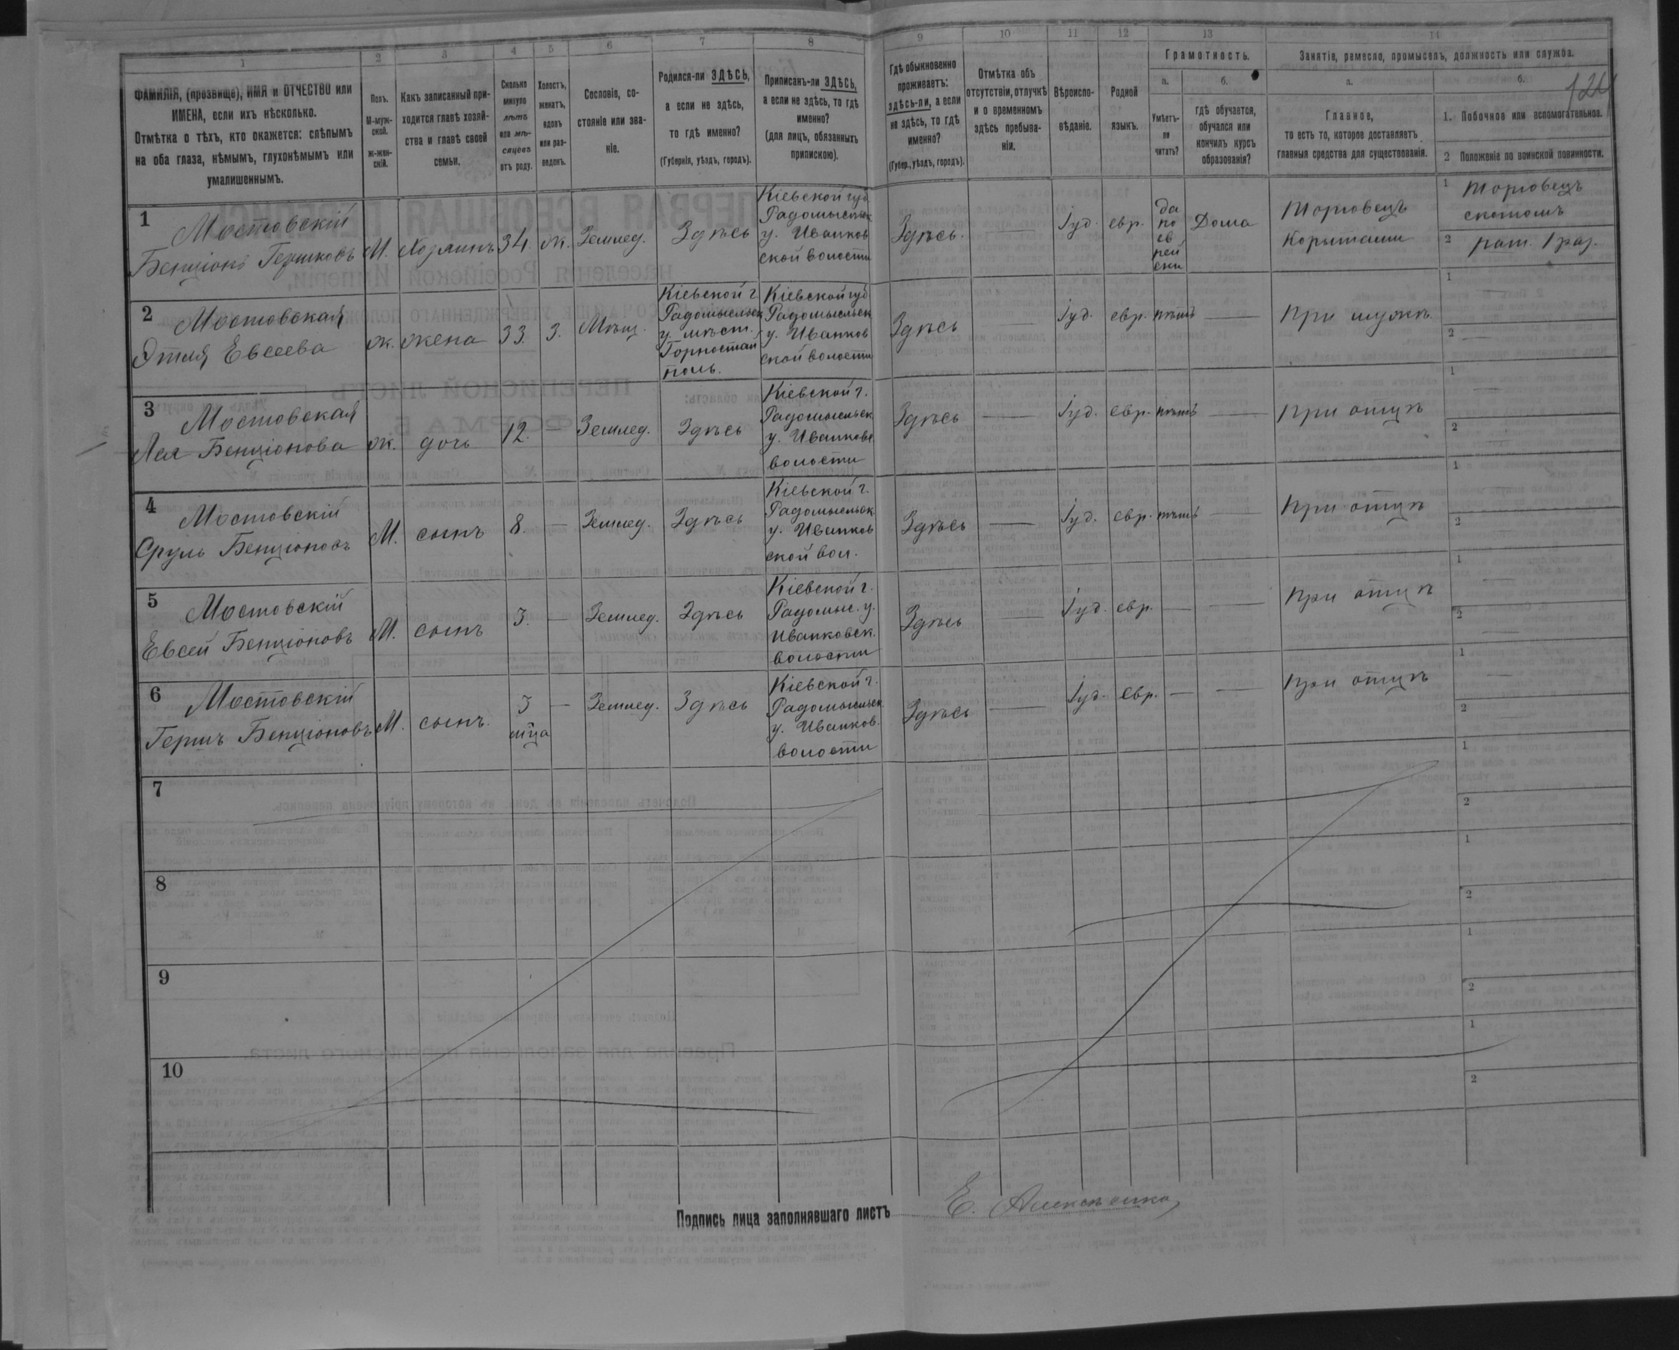 1 2 3 4 5 6 7 8 9 10 11 12 13 14
ФАМИЛІЯ, (прозвище), ИМЯ и ОТЧЕСТВО или
ИМЕНА, если ихъ нѣсколько.
Отмѣтка о тѣхъ, кто окажется: слѣпымъ
на оба глаза, нѣмымъ, глухонѣмымъ или
умалишеннымъ.
Полъ.
М-муж-
ской.
ж-жен-
скій.
Какъ записанный при-
ходится главѣ хозяй-
ства и главѣ своей
семьи.
Сколько
минуло
лѣтъ
или мѣ-
сяцевъ
отъ роду.
Холостъ,
женатъ,
вдовъ
или раз-
веденъ.
Сословіе, со-
стояніе или зва-
ніе.
Родился-ли ЗДѢСЬ,
а если не здѣсь,
то гдѣ именно?
(Губернія, уѣздъ, городъ).
Приписанъ-ли ЗДѢСЬ,
а если не здѣсь, то гдѣ
именно?
(для лицъ, обязанныхъ
припискою).
Гдѣ обыкновенно
проживаетъ:
здѣсь-ли, а если
не здѣсь, то гдѣ
именно?
(Губер., уѣздъ, городъ).
Отмѣтка объ
отсутствіи, отлучкѣ
и о временномъ
здѣсь пребыва-
ніи.
Вѣроиспо-
вѣданіе.
Родной
языкъ.
Грамотность.
а.
Умѣетъ-
ли
читать?
б.
гдѣ обучается,
обучался или
кончилъ курсъ
образованія?
Занятіе, ремесло, промыселъ, должность или служба.
а.
Главное,
то есть то, которое доставляетъ
главныя средства для существованія.
б.
1. Побочное или вспомогательное.
2 Положеніе по воинской повинности.
1
Мостовскій
Бенціонъ Гершковъ
М.
Хозяинъ
34
ж.
Землед.
Здѣсь
Кіевской губ
Радомысльск
у. Иванков
ской волости
Здѣсь.
Іуд.
евр.
да
по
ев
рей
ски
Дома
Торговецъ
1 Торговецъ
скотомъ
2
2
Мостовская
Этля Евсеева
ж.
жена
33.
З.
Мѣщ.
Кіевской г
Радомысльск
у. мѣст.
Горностай
поль.
Кіевской губ
Радомысльск
у. Иванков
ской волости
Здѣсь
Іуд.
евр.
нѣтъ
При мужѣ
1
2
3
Мостовская
Лея Бенціонова
ж.
дочь
12.
Землед.
Здѣсь
Кіевской г.
Радомысльск
у. Иванковс
волости
Здѣсь
Іуд.
евр.
нѣтъ
При отцѣ
1
2
4
Мостовскій
Сруль Бенціоновъ
М.
сынъ
8.
Землед.
Здѣсь
Кіевской г.
Радомысльск
у. Иванков
ской вол.
Здѣсь
Іуд.
евр.
нѣтъ
При отцѣ
1
2
5
Мостовскій
Евсей Бенціоновъ
М.
сынъ
3.
Землед.
Здѣсь
Кіевской г.
Радомыс. у.
Иванковск.
волости
Здѣсь
Іуд.
евр.
При отцѣ
1
2
6
Мостовскій
Гершъ Бенціоновъ
М.
сынъ.
3
м-ца
Землед.
Здѣсь
Кіевской г.
Радомысльск
у. Иванков.
волости
Здѣсь
Іуд.
евр.
При отцѣ
1
2
7
1
2
8
1
2
9
1
2
10
1
2
Подпись лица заполнявшаго листъ